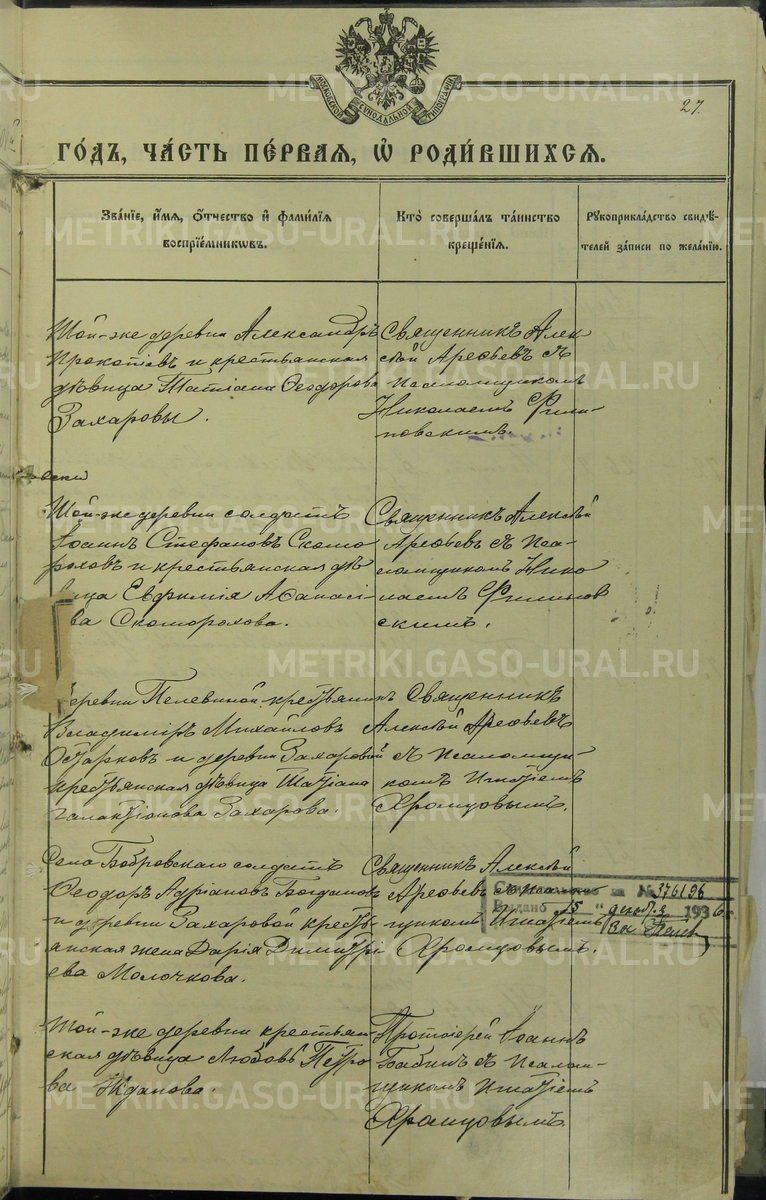 МОСКОВСКОЙ СѴНОДАЛЬНОЙ ТИПОГРАФІИ
27.
ГОДЪ, ЧАСТЬ ПЕРВАЯ, Ѡ РОДИВШИХСЯ.
Званіе, имя, отчество и фамилія
воспріемниковъ.
Кто совершалъ таинство
крещенія.
Рукоприкладство свидѣ-
телей записи по желанію.
Той-же деревни Александръ
Прокопіевъ и крестьянская
дѣвица Татіана Ѳеодорова
Захаровы.
Священникъ Алек
сѣй Арефьевъ съ
псаломщикомъ
Николаемъ Фили-
повскимъ.
Той-же деревни солдатъ
Іоаннъ Стефановъ Скомо
роховъ и крестьянская дѣ
вица Евфимія Аѳанасі-
ева Скоморохова.
Священникъ Алексѣй
Арефьевъ съ пса-
ломщикомъ Нико
лаемъ Филипов
скимъ.
Деревни Пелевиной крестьянинъ
Владиміръ Михайловъ
и деревни Захаровой
крестьянская дѣвица Татіана
Галактіонова Захарова.
Священникъ
Алексѣй Арефьевъ
съ псаломщи-
комъ Игнатіемъ
Хромцовымъ.
Села Бобровскаго солдатъ
Ѳеодоръ Адріановъ Богдановъ
и деревни Захаровой кресть-
янская жена Дарія Димитрі
ева Молочкова.
Священникъ Алексѣй
Арефьевъ съ псалом-
щикомъ Игнатіемъ
Хромцовымъ.
№ 376196
Выдано 15 " декабря 1936
Той-же деревни крестьян-
ская дѣвица Любовь Петро
ва Жданова.
Протоіерей Іоаннъ
Бабинъ съ псалом-
щикомъ Игнатіемъ
Хромцовымъ.
METRIKI.GASO-URAL.RU